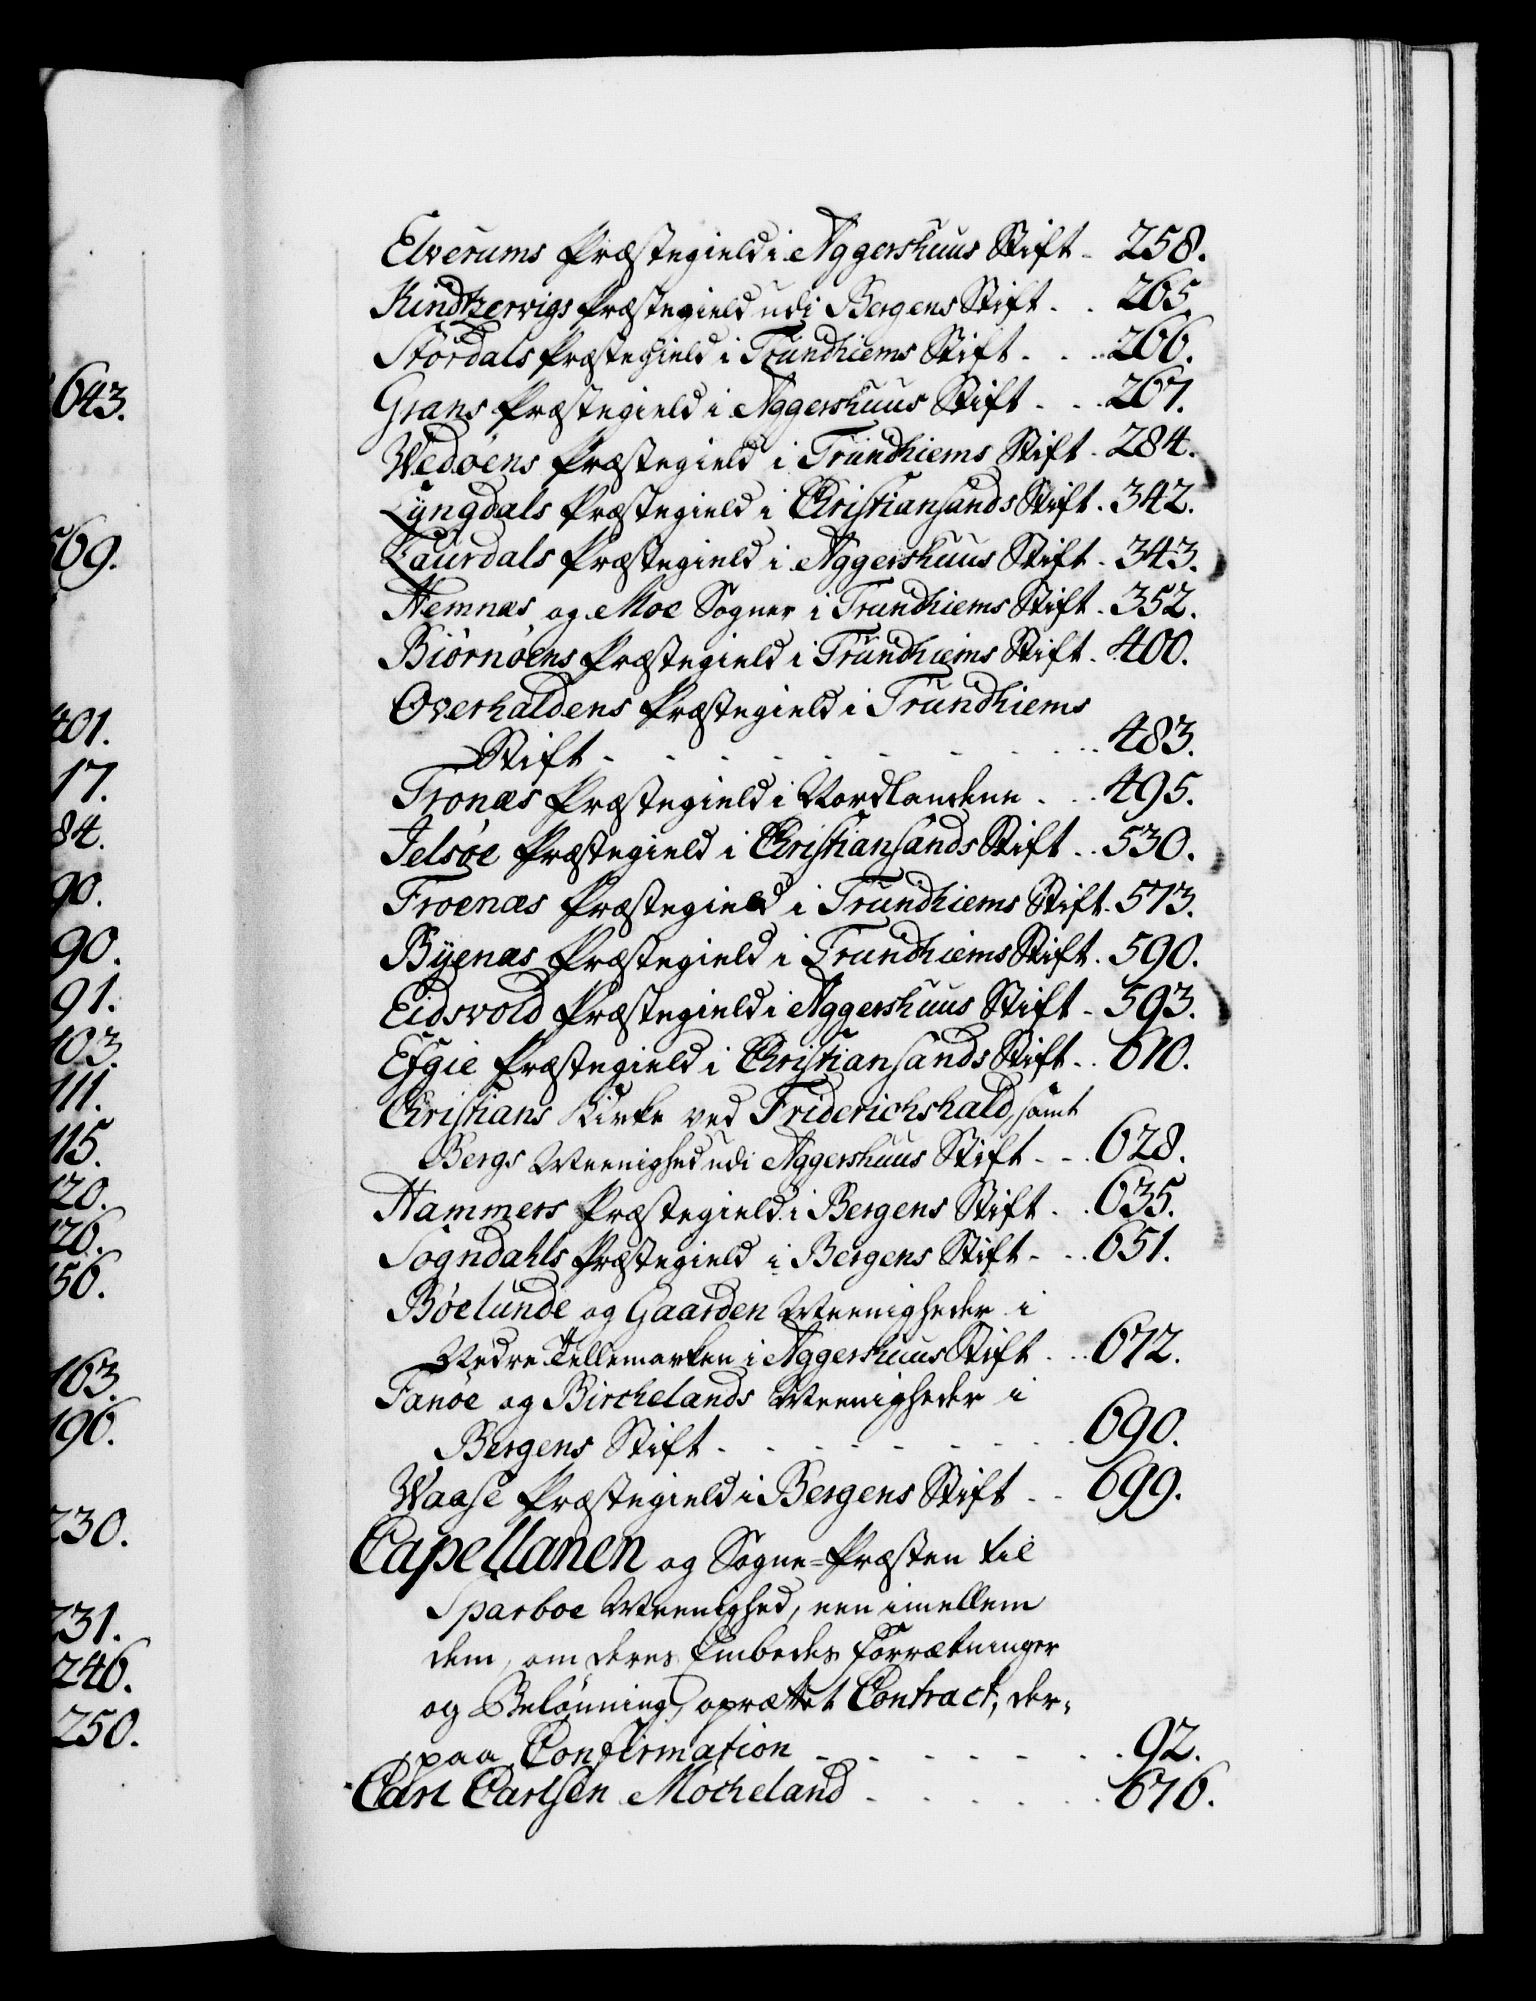 643.
569.
401.
17.
84.
90.
90.
91.
103.
111.
115.
120.
126.
156.
163.
196.
230.
231.
246.
250.
Elverums Præstegield i Aggershuus Stift - 258.
Kindhervigs Præstegield udi Bergens Stift . . 265.
Stördals Præstegield i Trundhiems Stift . . . 266.
Grans Præstegield i Aggershuus Stift . . . 267.
Wedøens Præstegield i Trundhiems Stift . 284.
Lyngdals Præstegield i Christiansands Stift . 342.
Laurdals Præstegield i Aggershuus Stift . 343.
Nemnæs og Moe Sogner i Trundhiems Stift . 352.
Biørnøens Præstegield i Trundhiems Stift . 400.
Overhaldens Præstegield i Trundhiems
Stift . . . . . . . . . 483.
Tronæs Præstegield i Nordlandene . . . 495.
Jelsøe Præstegield i Christiansands Stift . . 530.
Froenæs Præstegield i Trundhiems Stift . 573.
Byenæs Præstegield i Trundhiems Stift . 590.
Eidsvold Præstegield i Aggershuus Stift - 593.
Efgie Præstegield i Christiansands Stift . . 610.
Christians Kirke ved Friderichshald, samt
Bergs Meenighed udi Aggershuus Stift . - . 628.
Hammers Præstegield i Bergens Stift . . 635.
Sogndahls Præstegield i Bergens Stift - . . 651.
Bøelunde og Gaarden Meenigheder i
Nedre Tellemarken i Aggershuus Stift . . . 672.
Fanøe og Birchelands Meenigheder i
Bergens Stift . . . . . . . . 690.
Waase Præstegield i Bergens Stift . . 699.
Capellanen og Sogne=Præsten til
Sparboe Meenighed, een imellem
dem, om deres Embedes Forrætninger
og Belönning, oprættet Contract, der,
paa Confirmation . . . . . . . 92.
Carl Carlsen Mocheland . . . . . . 676.